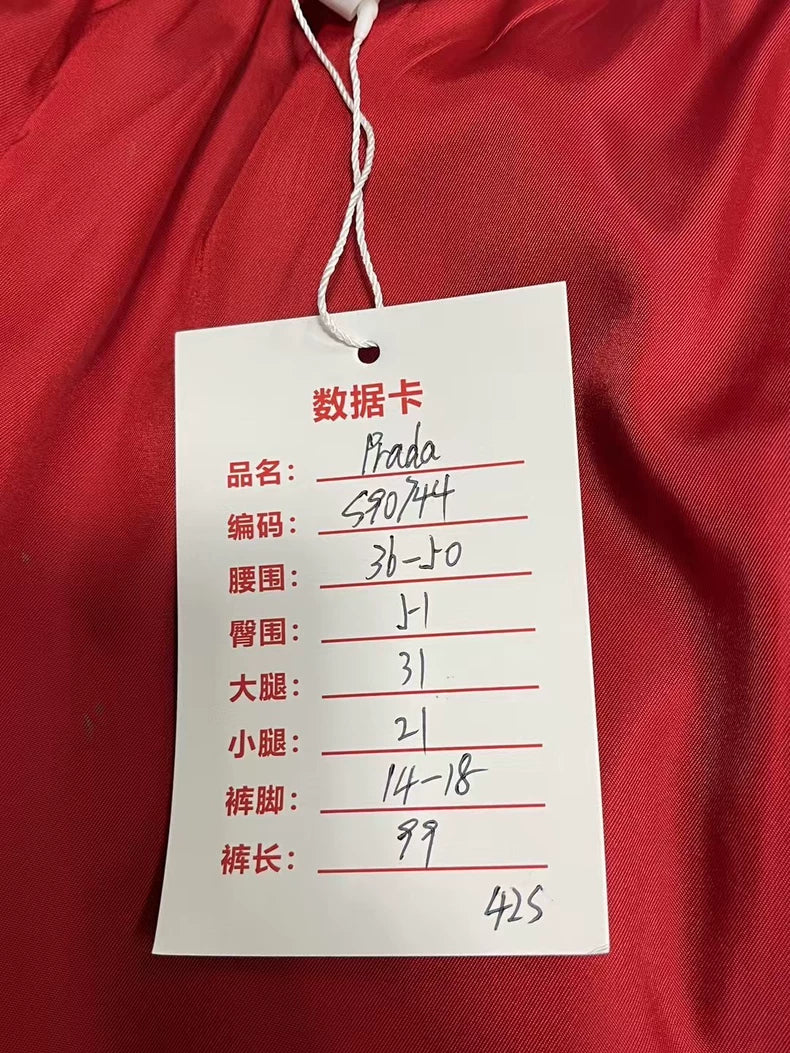 数据卡
品名： Prada
编码： S90744
腰围： 36-50
臀围： 51
大腿： 31
小腿： 21
裤脚： 14-18
裤长： 99
425